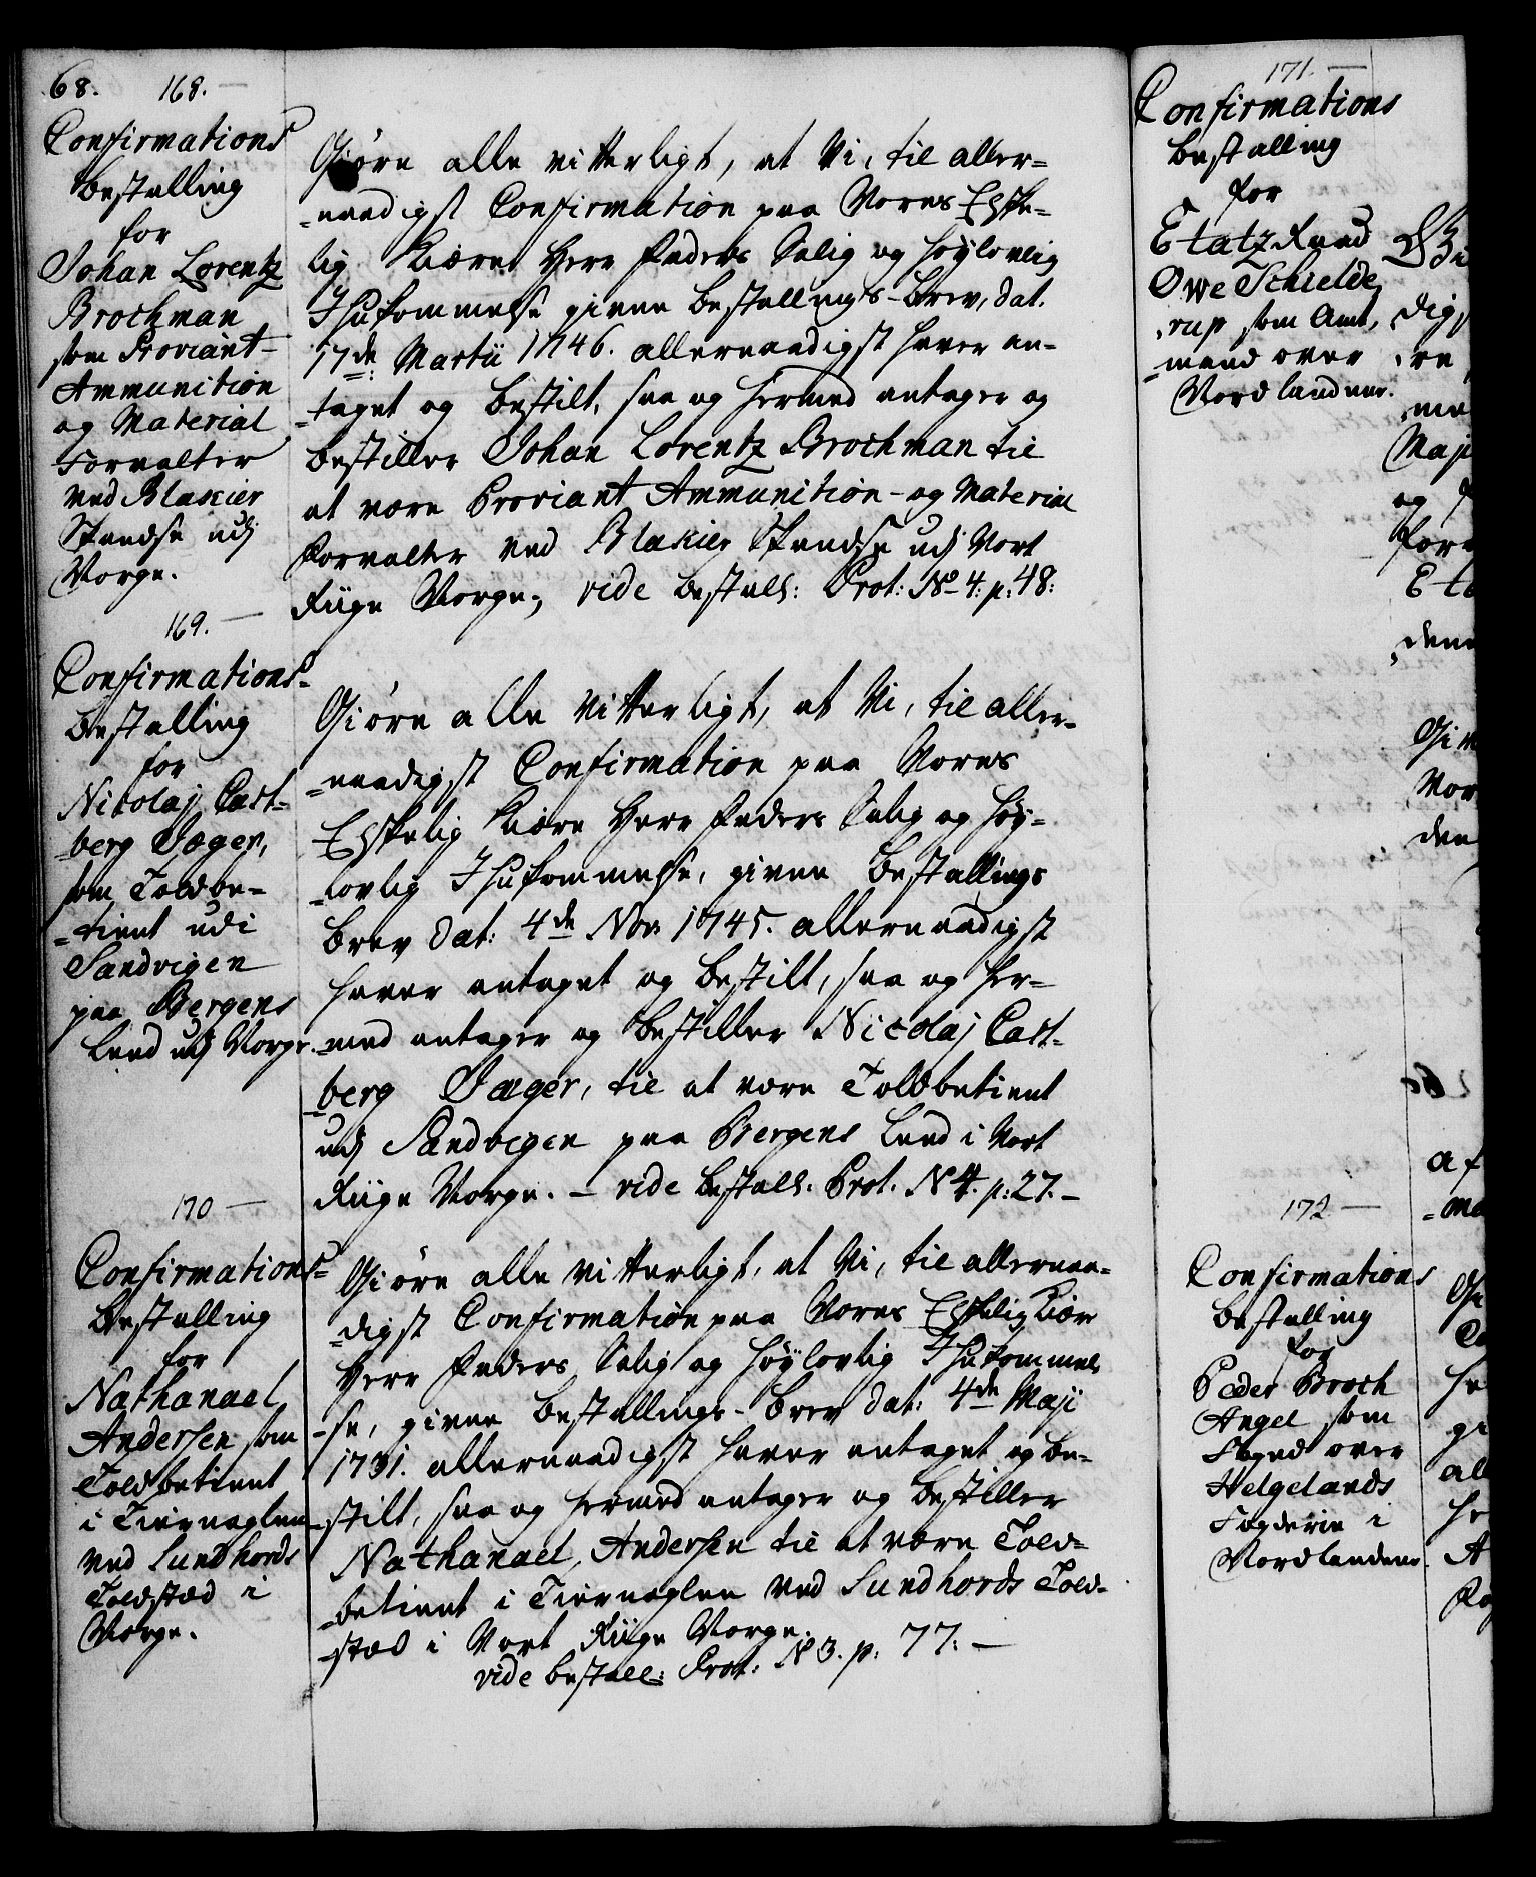 68.
168.
Confirmations
bestalling
for
Johan Lorentz
Brochman
som Proviant-
Ammunition
og Material
Forvalter
ved Blakier
Skandse udj
Norge.
Giøre alle vitterligt, at Vi, til aller-
-naadigst Confirmation paa Vores Elske-
lig Kiære Herr Faders Salig og høylovlig
Ihukommelse givne bestallings-brev, dat.
17de Martii 1746. allernaadigst haver an-
-taget og bestilt, saa og hermed antager og
bestiller Johan Lorentz Brochman til
at være Proviant Ammunition- og Material
Forvalter ved Blakier Skandse udj Vort
Riige Norge, vide bestall: Prot: No 4: p: 48:
169.
Confirmations-
bestalling
for
Nicolaj Cast-
-berg Jæger,
som Toldbe-
-tient udi
Sandvigen
paa Bergens
Land udj Norge.
Giøre alle vitterligt, at Vi, til aller-
-naadigst Confirmation paa Vores
Elskelig Kiære Herr Faders Salig og høy-
-lovlig Ihukommelse, givne bestallings
brev dat: 4de Nov: 1745. allernaadigst
haver antaget og bestilt, saa og her-
-med antager og bestiller Nicolaj Cast-
-berg Jæger, til at være Toldbetient
udj Sandvigen paa Bergens Land i Vort
Riige Norge. - vide bestall: Prot. N 4. p: 27. -
170
Confirmations-
bestalling
for
Nathanael
Andersen som
Toldbetient
i Tiernaglen
ved Sundhords
Toldsted i
Norge.
Giøre alle vitterligt, at Vi, til allernaa-
-digst Confirmation paa Vores Elskelig Kiær
Herr Faders Salig og høylovlig Ihukommel-
-se, givne bestallings-brev dat: 4de Maji
1731. allernaadigst haver antaget og be-
-stilt, saa og hermed antager og bestiller
Nathanael Andersen til at være Told-
-betient i Tiernaglen ved Sundhords Told-
-sted i Vort Riige Norge.
vide bestall: Prot: N 3. p: 77: -
171.
Confirmations
bestalling
for
Etatz Raad
Owe Schielde,
-rup som Amt,
-mand over
Nordlandene.
172
Confirmations
bestalling
for
Peder Broch
Angel som
Foged over
Helgelands
Fogderie i
Nordlandene.